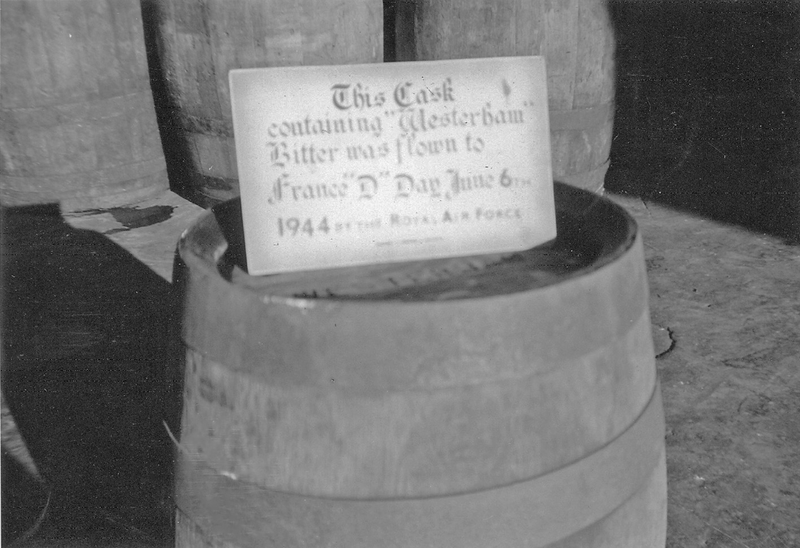 This Cask
containing "Westerham"
Bitter was flown to
France "D" Day June 6TH
1944 BY THE ROYAL AIR FORCE